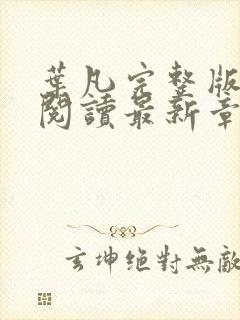 葉凡完整版
閱讀最新章
玄坤絕對無敵